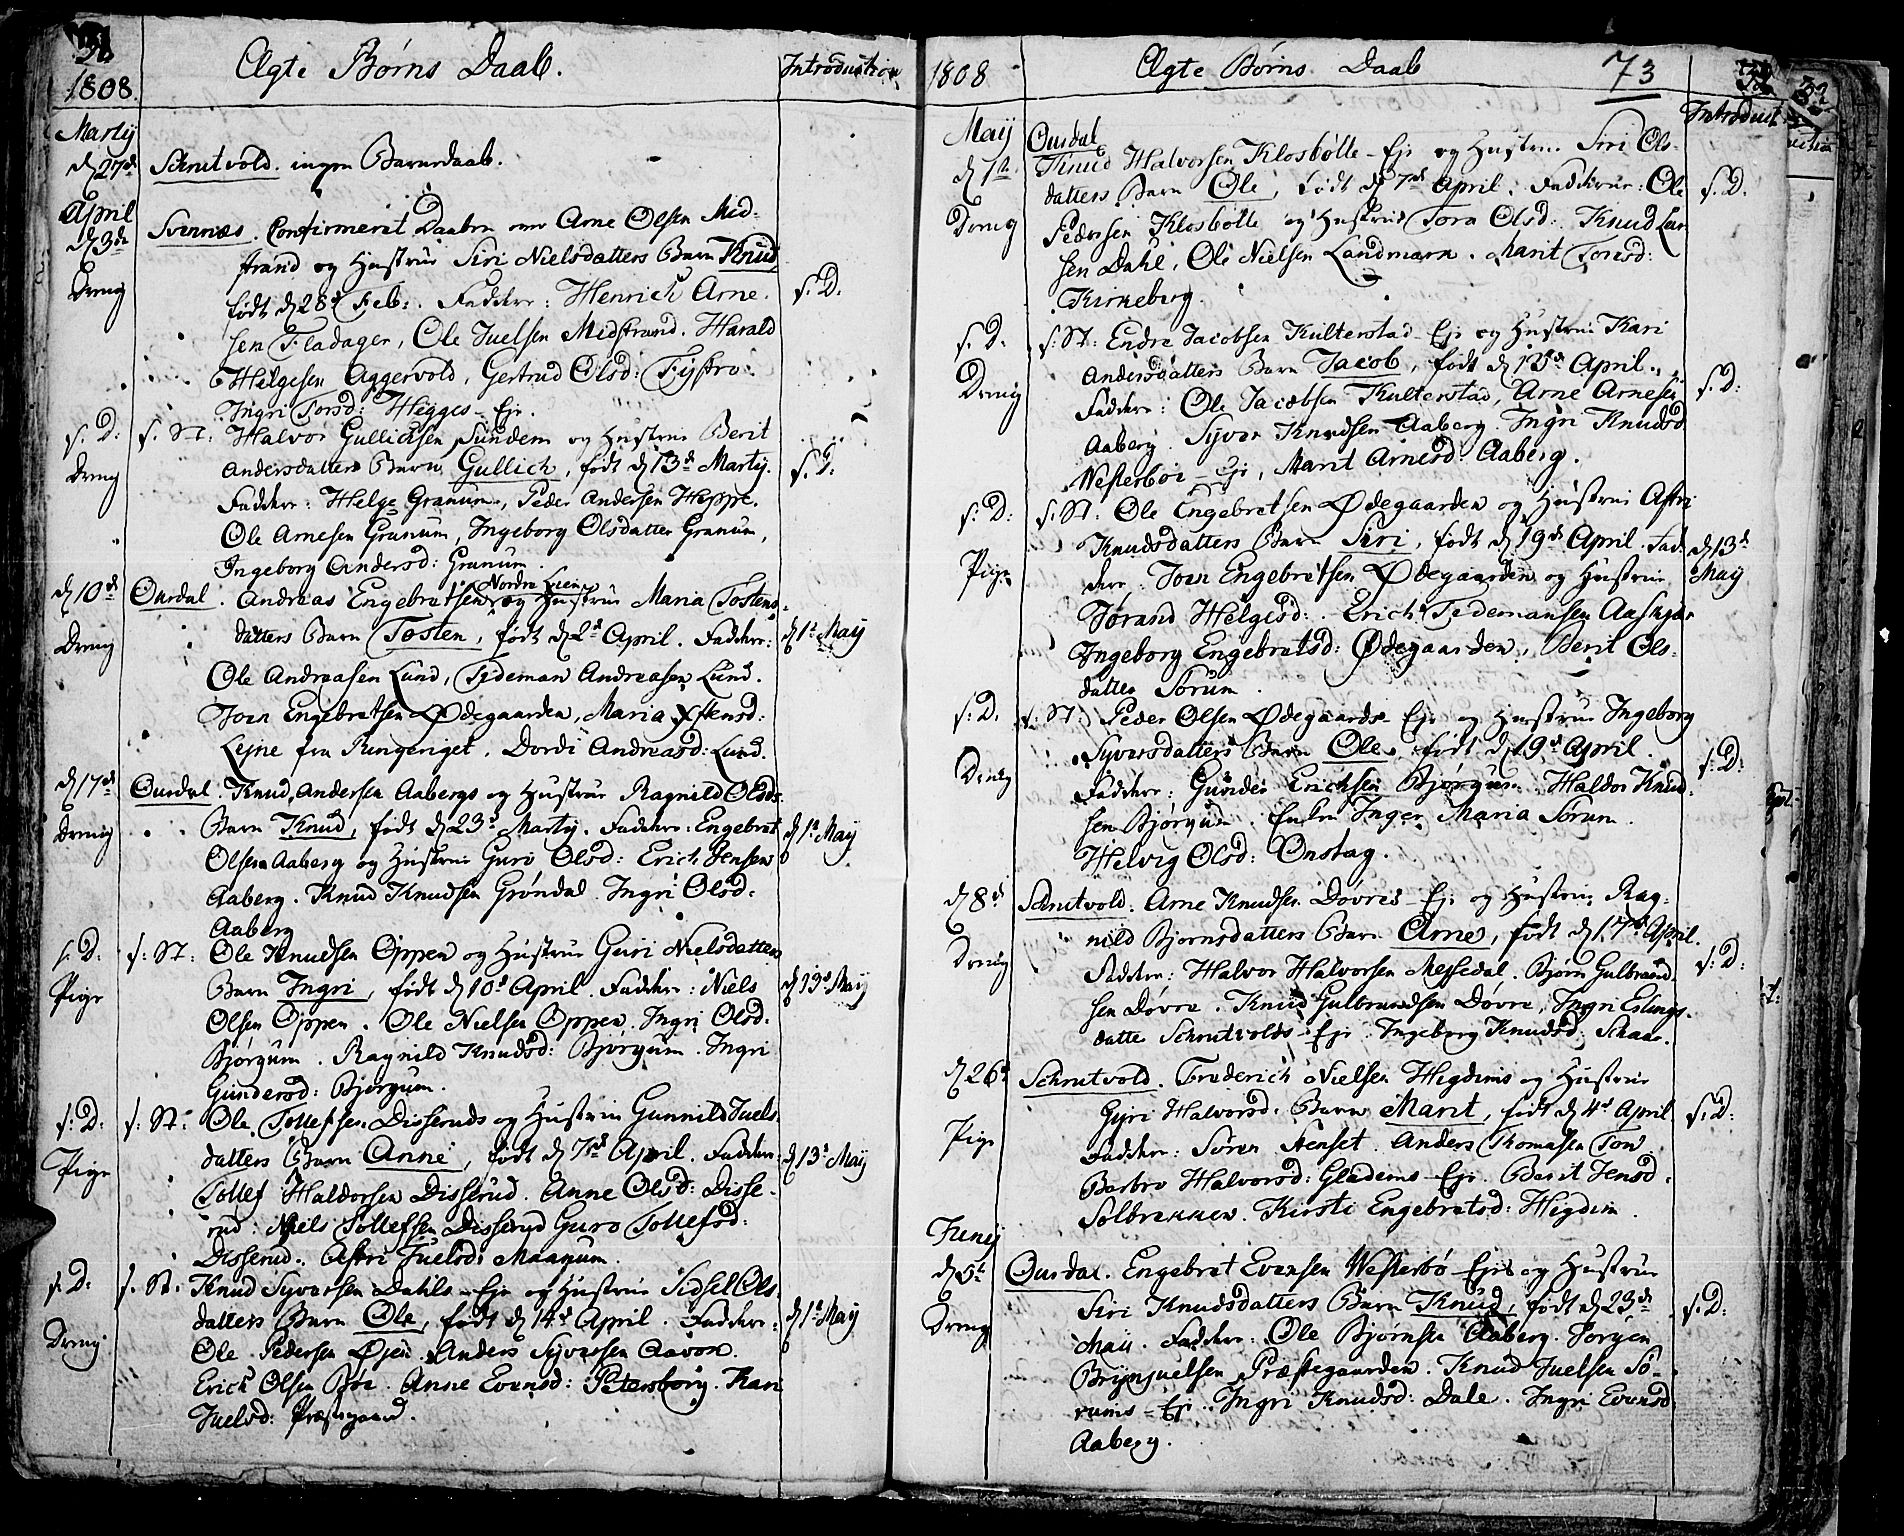 1808. Ægte Børns Daab. Introduction
Martij
d 27de Schrutvold. ingen Barnedaab.
April
d 3de Svennæs. Confirmerit Daaben over Arne Olsen Mid-
strand og Hustrue Siri Nielsdatters Barn Knud
Dreng født d 28de Feb: Faddere: Henrich Arne- s. D:
sen Fladager, Ole Juelsen Midstrand. Harald
Helgesen Aggervold, Gertrud Olsd:
Ingri Torsd: Hegges-Eje.
s. D: s. St: Halvor Gullichsen Sundem og Hustrue Berit
Dreng Andersdatters Barn Gullich, født d 13de Martij. s. D:
Faddere: Helge Granum, Peder Andersen
Ole Arnesen Granum, Ingeborg Olsdatter Granum,
Ingeborg Andersd: Granum.
d 10de Ourdal. Andreas Engebretsen Nordre Lien og Hustrue Maria Tostens-
Dreng datters Barn Tosten, født d 2de April. Faddere: d 1te May
Ole Andreasen Lund, Tideman Andreasen Lund.
Joen Engebretsen Ødegaarden, Maria
fra Ringeriget. Dordi Andreasd: Lund.
d 17de Ourdal. Knud Andersen Aabergs og Hustrue Ragnild Olsds
Dreng Barn Knud, født d 23de Martij. Faddere: Engebret d 1te May
Olsen Aaberg og Hustrue Guri Olsd: Erich Jensen
Aaberg. Knud Knudsen Grøndal. Ingri Olsd:
Aaberg
s. D: s: St: Ole Knudsen Oppen og Hustrue Guri Nielsdatters
Pige Barn Ingri, født d 10de April. Faddere: Niels d 13de May
Olsen Oppen. Ole Nielsen Oppen, Ingri Olsd:
Bjørgum. Ragnild Knudsd: Bjørgum. Ingri
Gundersd: Bjørgum.
s: D: s: St: Ole Tollefsen Disseruds og Hustrue Gunnild Juels-
Pige datters Barn Anne, født d 7de April. Faddere: d 13de May
Tollef Haldorsen Disserud. Anne Olsd: Disse-
rud. Niels Tollefsen Disserud Guro Tollefsd:
Disserud. Astri Juelsd: Maagum.
s. D: s. St: Knud Syversen Dahls-Eje og Hustrue Sidsel Ols-
Dreng datters Barn Ole, født d 14de April. Faddere: d 1te May
Ole Pedersen Øjen. Anders Syversen
Erich Olsen Bøe. Anne Evensd: Petersborg. Kari
Juelsd: Præstegaard.

1808 Ægte Børns Daab 73
Introduct
May Ourdal
d 1te Knud Halvorsen Klosbølle-Eje og Hustrue Siri Ols-
datters Barn Ole, født d 7de April. Faddere: Ole s. D.
Dreng Pedersen Klosbølle og Hustrue Tora Olsd: Knud Lar-
sen Dahl, Ole Nielsen Landmark. Marit Toresd:
Kirkeberg.
s. D. s: St: Endre Jacobsen Kulterstad-Eje og Hustrue Kari
Dreng Andersdatters Barn Jacob, født d 13de April. s. D:
Faddere: Ole Jacobsen Kulterstad, Arne Arnesen
Aaberg. Syver Knudsen Aaberg. Ingri Knudsd:
Westerbøe Eje, Marit Arnesd: Aaberg.
s: D: s. St: Ole Engebretsen Ødegaarden og Hustrue Astri
Knudsdatters Barn Siri, født d 19de April. Fad- d 13de
Pige dere. Joen Engebretsen Ødegaarden og Hustrue May
Jorand Helgesd: Erich Tidemansen
Ingeborg Engebretsd: Ødegaarden, Berit Ols-
datter Sorum.
s: D. s: St: Peder Olsen Ødegaards-Eje og Hustrue Ingeborg
Syversdatters Barn Ole, født d 19de April.
Dreng Faddere: Gunder Erichsen Bjørgum. Haldor Knud- s: D:
sen Bjørgum. Enken Inger Maria Sorum.
Helvig Olsd: Onstag.
d 8de Schrutvold. Arne Knudsen Døvres-Eje og Hustrue Rag-
nild Bjørnsdatters Barn Arne, født d 17de April.
Dreng Faddere: Halvor Halvorsen Messedal. Bjørn Gulbrand- s: D:
sen Døvre. Knud Gulbrandsen Døvre, Ingri Erlings-
datte Schrutvolds-Eje Ingeborg Knudsd: Skaar.
d 26de Schrutvold. Frederich Nielsen Hegdems og Hustrue
Gyri Halvorsd: Barn Marit, født d 4de April. s. D:
Pige Faddere: Søren Stenset. Anders Thomasen
Barbro Halvorsd: Glædems-Eje. Berit Jensd:
Solbrekken. Kirsti Engebretsd: Hegdem.
Junij
d 5te Ourdal. Engebret Evensen Westerbø-Eje og Hustrue
Siri Knudsdatters Barn Knud, født d 23de s. D:
Dreng Maii. Faddere: Ole Bjørnsen Aaberg. Jørgen
Brynjuelsen Præstegaarden. Knud Juelsen So-
rums-Eje. Ingri Knudsd: Dale. Ingri Evensd:
Aaberg.